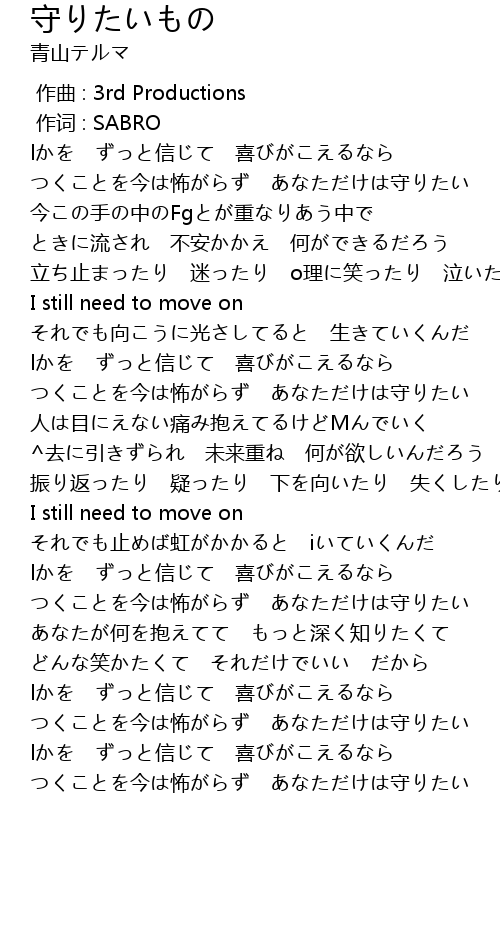 守りたいもの
青山テルマ
作曲 : 3rd Productions
作词 : SABRO
lかを　ずっと信じて　喜びがこえるなら
つくことを今は怖がらず　あなただけは守りたい
今この手の中のFgとが重なりあう中で
ときに流され　不安かかえ　何ができるだろう
立ち止まったり　迷ったり　o理に笑ったり　泣いた
I still need to move on
それでも向こうに光さしてると　生きていくんだ
lかを　ずっと信じて　喜びがこえるなら
つくことを今は怖がらず　あなただけは守りたい
人は目にえない痛み抱えてるけどMんでいく
^去に引きずられ　未来重ね　何が欲しいんだろう
振り返ったり　疑ったり　下を向いたり　失くしたり
I still need to move on
それでも止めば虹がかかると　iいていくんだ
lかを　ずっと信じて　喜びがこえるなら
つくことを今は怖がらず　あなただけは守りたい
あなたが何を抱えてて　もっと深く知りたくて
どんな笑かたくて　それだけでいい　だから
lかを　ずっと信じて　喜びがこえるなら
つくことを今は怖がらず　あなただけは守りたい
lかを　ずっと信じて　喜びがこえるなら
つくことを今は怖がらず　あなただけは守りたい